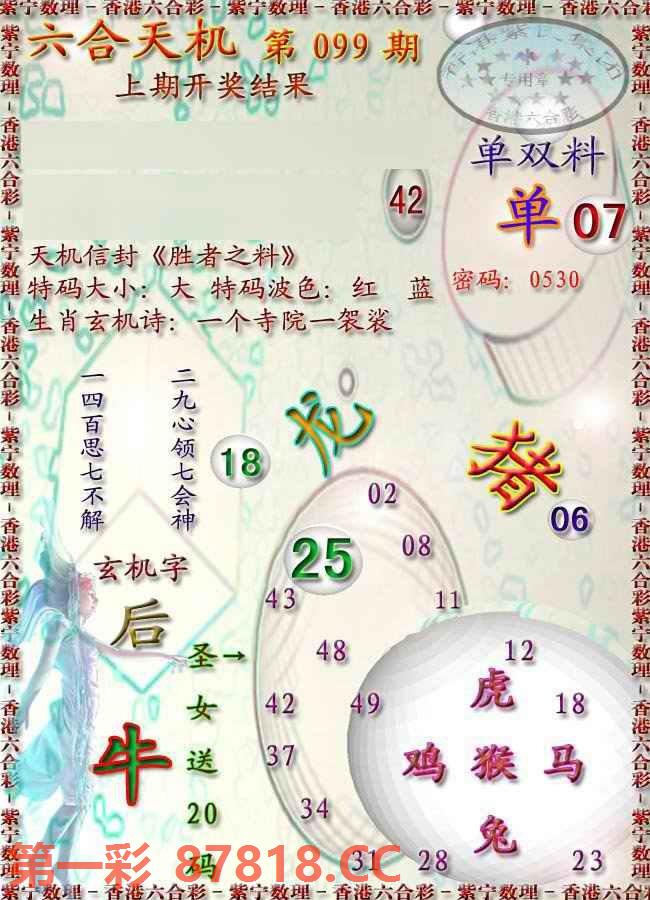 紫宁数理-香港六合彩-紫宁数理-香港六合彩-紫宁数理-香港六合彩
六合天机 第 099 期
上期开奖结果
专用章
香港六合彩
单双料
42
单 07
天机信封《胜者之料》
特码大小：大 特码波色：红 蓝
密码：0530
生肖玄机诗：一个寺院一袈裟
一四百思七不解
二九心领七会神
18
龙
猪
06
02
25
08
43
11
玄机字
后
牛
圣→
女
送
20
码
48
12
42
49
18
虎
37
鸡 猴 马
34
兔
31
28
23
第一彩 87818.CC
紫宁数理-香港六合彩-紫宁数理-香港六合彩-紫宁数理